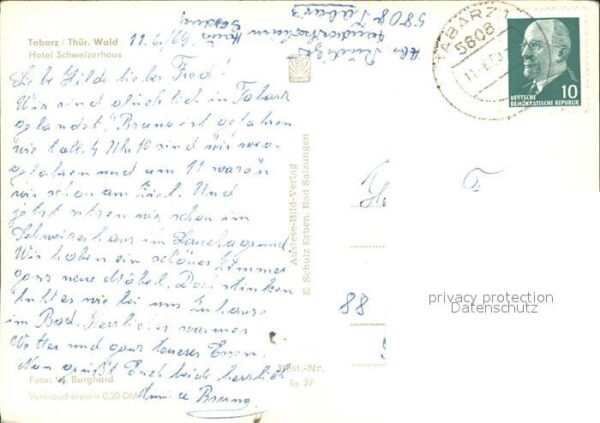 Tabarz / Thür. Wald
Hotel Schweizerhaus
11.6.69
5808 Tabarz
TABARZ 1
5808
10
DEUTSCHE
DEMOKRATISCHE REPUBLIK
Liebe Hilde lieber Fred!
Wir sind glücklich in Tabarz
gelandet, Bruno ist gefahren
wie toll. 4 Uhr 10 sind wir
gefahren und um 11 waren
wir schon am Ziel. Und
jetzt sitzen wir schon im
Schweizerhaus im Lauchagrund
Wir haben ein schönes Zimmer
ganz neue Möbel. Doch stinken
tut es wie bei uns zu Hause
im Bad. Herrliches warmes
Wetter und ganz teueres Essen.
Nun grüßt Euch beide herzlich
u Bruno
Auslese-Bild-Verlag
E. Schulz Erben, Bad Salzungen
88
privacy protection
Datenschutz
Foto: W. Burghard
Verbraucherpreis 0,20 DM
Best.-Nr.